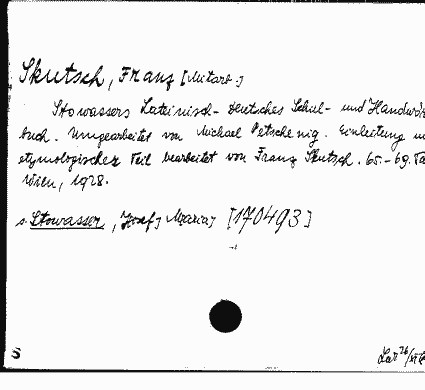 Skutsch, Franz [Mitarb.]
Stowassers Lateinisch-Deutsches Schul- und Handwör
buch. Umgearbeitet von Michael Petschenig. Einleitung u
etymologischer Teil bearbeitet von Franz Skutsch. 65.-69. Ta
Wien, 1928.
s. Stowasser, Josef] Maria] [170493]
S